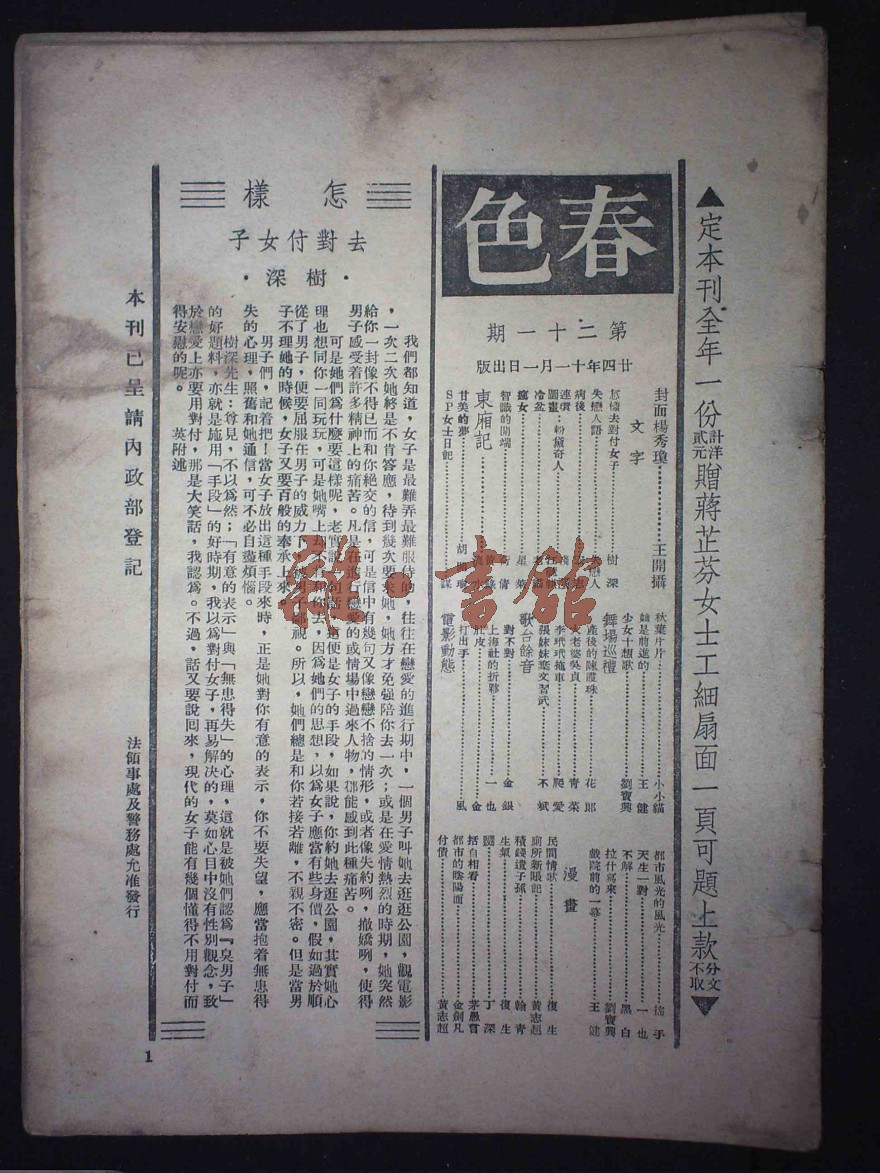 ▲定本刊全年一份計洋贰元贈蔣芷芬女士工細扇面一頁可題上款分文不取▼
春色
第二十一期
廿四年十一月一日出版
封面楊秀瓊…王開攝
文字
怎樣去對付女子…樹深
失戀人語…戀人
病後
連環圖畫:粉黛奇人
冷盆
瘋女…星
智識的開端…倩
東廂記
甘美的夢…胡
SP女士日記
秋葉片片…小小貓
她是前進的…王健
少女十想歌…劉寶興
舞場巡禮
產後的陳霞珠…花郎
大老婆吳貞…青菜
李玳玳拖車…爬愛
張妹妹棄文習武…不斌
歌台餘音
對不對…金銀
上海社的折夥…一也
肚皮…金
打出手…風
電影動態
都市風光的風光…拙手
天生一對…一也
不解…黑白
拉什寫來…劉寶興
戲院前的一幕…王健
漫畫
民間情歌…復生
廁所新眼記…黄志超
積錢遺子孫…翰青
生氣…復生
隨…丁深
括自相看…茅愚言
都市的陰陽面…金劍凡
付債…黄志超
怎樣
去對付女子
·樹深·
我們都知道,女子是最難弄最難服侍的,往往在戀愛的進行期中,一個男子叫她去逛逛公園,觀電影
,一次二次她終是不肯答應,待到幾次要求她,她方才免强陪你去一次;或是在愛情熱烈的時期,她突然
給你一封像不得已而和你絶交的信,可是信中有幾句又像戀戀不捨的情形,或者像失約咧,撤嬌咧,使得
男子感受着許多精神上的痛苦。凡是在進行戀愛的或情場中過來人物,都能感到此種痛苦。
可是她們爲什麼要這樣呢,老實說一句話,這便是女子的手段,如果說,你約她去逛公園,其實她心
理也想同你一同玩玩,可是她嘴上却不肯和你去,因爲她們的思想,以爲女子應當有些身價,假如過於順
從了男子,便要屈服在男子的威力下,被男子鄙視。所以,她們總是和你若接若離,不親不密。但是當男
子不理她的時候,女子又要百般的奉承上來。
男子們,記着把!當女子放出這種手段來時,正是她對你有意的表示,你不要失望,應當抱着無患得
失的心理,照舊和她通信,可不必自盡煩惱。
樹深先生:尊見,不以爲然;「有意的表示」與「無患得失」的心理,這就是被她們認爲『臭男子』
的好題料,亦就是施用「手段」的好時期,我以爲對付女子,再易解決的,莫如心目中沒有性別觀念,致
於戀愛上亦要用對付,那是大笑話,我認爲。不過,話又要說囘來,現代的女子能有幾個懂得不用對付而
得安慰的呢。 英附述
本刊已呈請內政部登記
法領事處及警務處允准發行
1
雜·書館